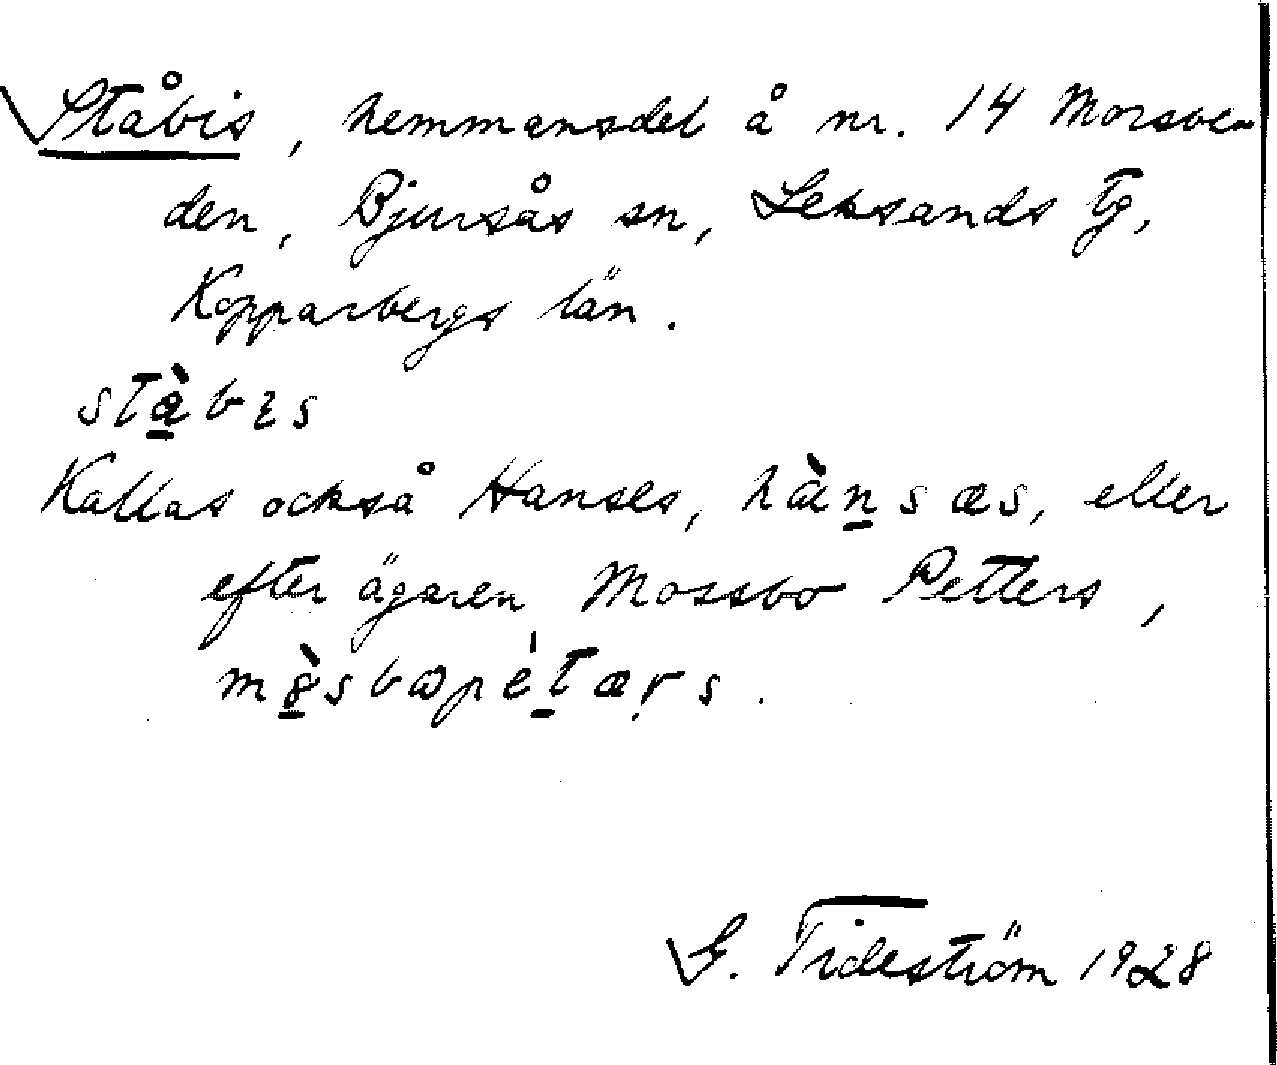 Ståbis, hemmansdel å nr. 14 Morsbe-
den, Bjursås sn, Leksands tg,
Kopparbergs län.
Kallas också Hanses, eller
efter ägaren Mossbo Petters,
G. Tideström 1928